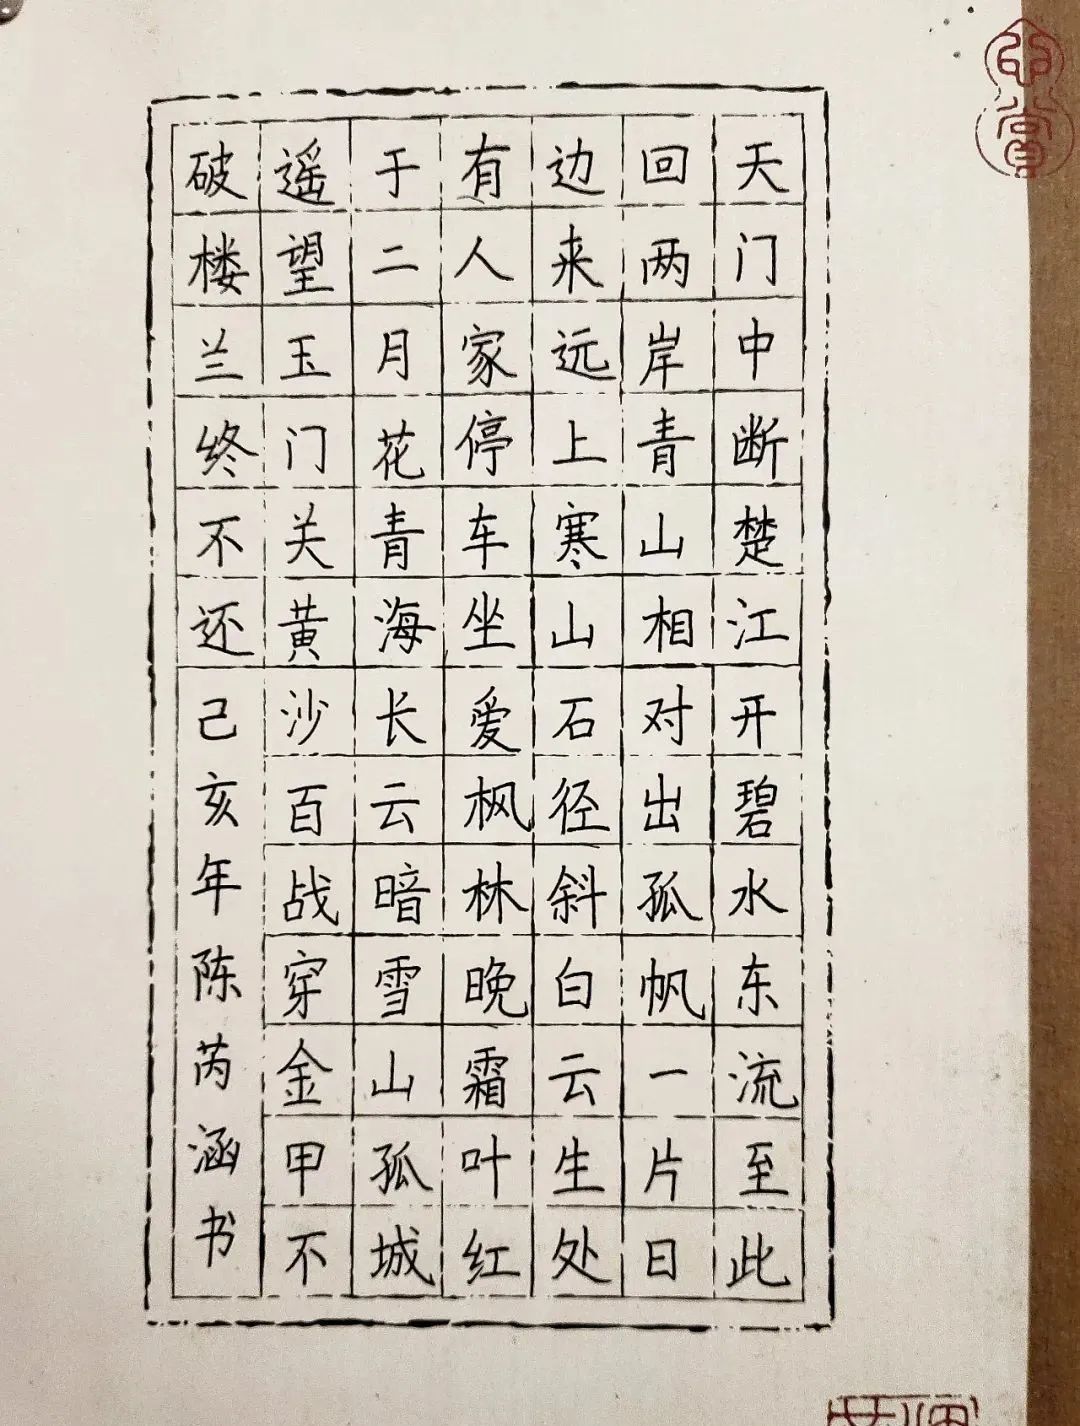 天门中断楚江开碧水东流至此
回两岸青山相对出孤帆一片日
边来远上寒山石径斜白云生处
有人家停车坐爱枫林晚霜叶红
于二月花青海长云暗雪山孤城
遥望玉门关黄沙百战穿金甲不
破楼兰终不还
己亥年陈芮涵书